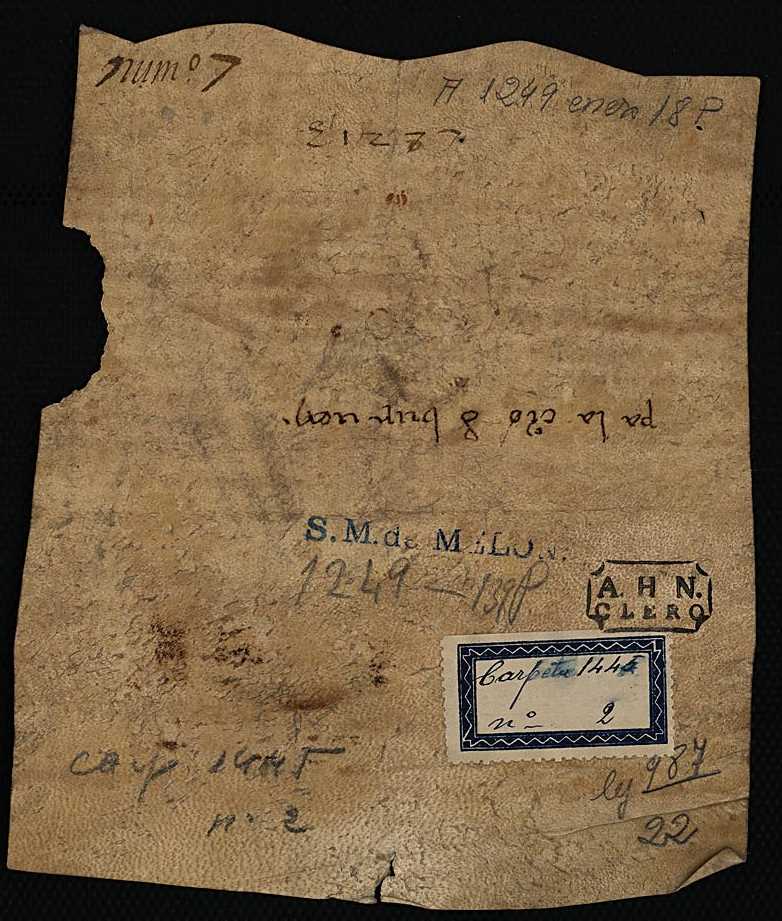 num.º 7
A 1249 enero 18 P.
pa la
S. M. de MELON.
1249
A. H. N.
CLERO
Carpeta 1445
nº 2
carp 1445
nº 2
leg 987
22